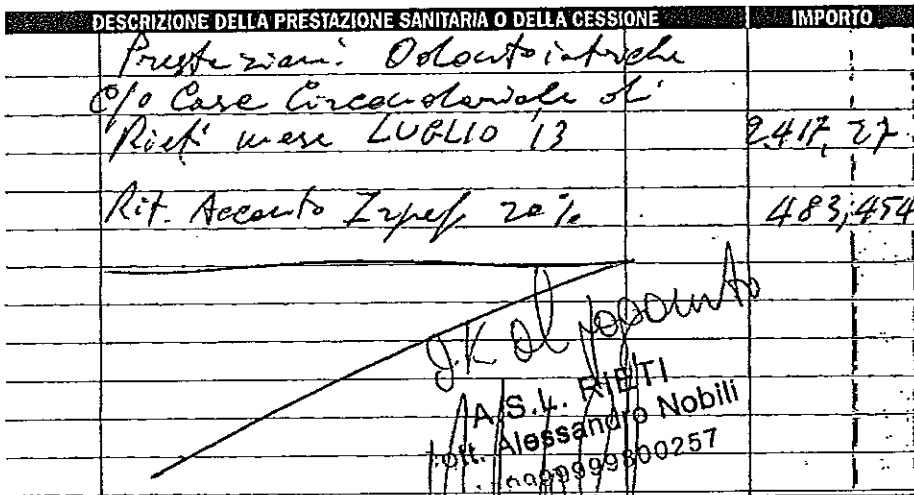 DESCRIZIONE DELLA PRESTAZIONE SANITARIA O DELLA CESSIONE IMPORTO
Prestazioni Odontoiatriche
c/o Casa Circondariale di
Rieti mese LUGLIO 13 2.417,27
Rit. Acconto Irpef 20% 483,454
OK al pagamento
A.S.L. RIETI
Dott. Alessandro Nobili